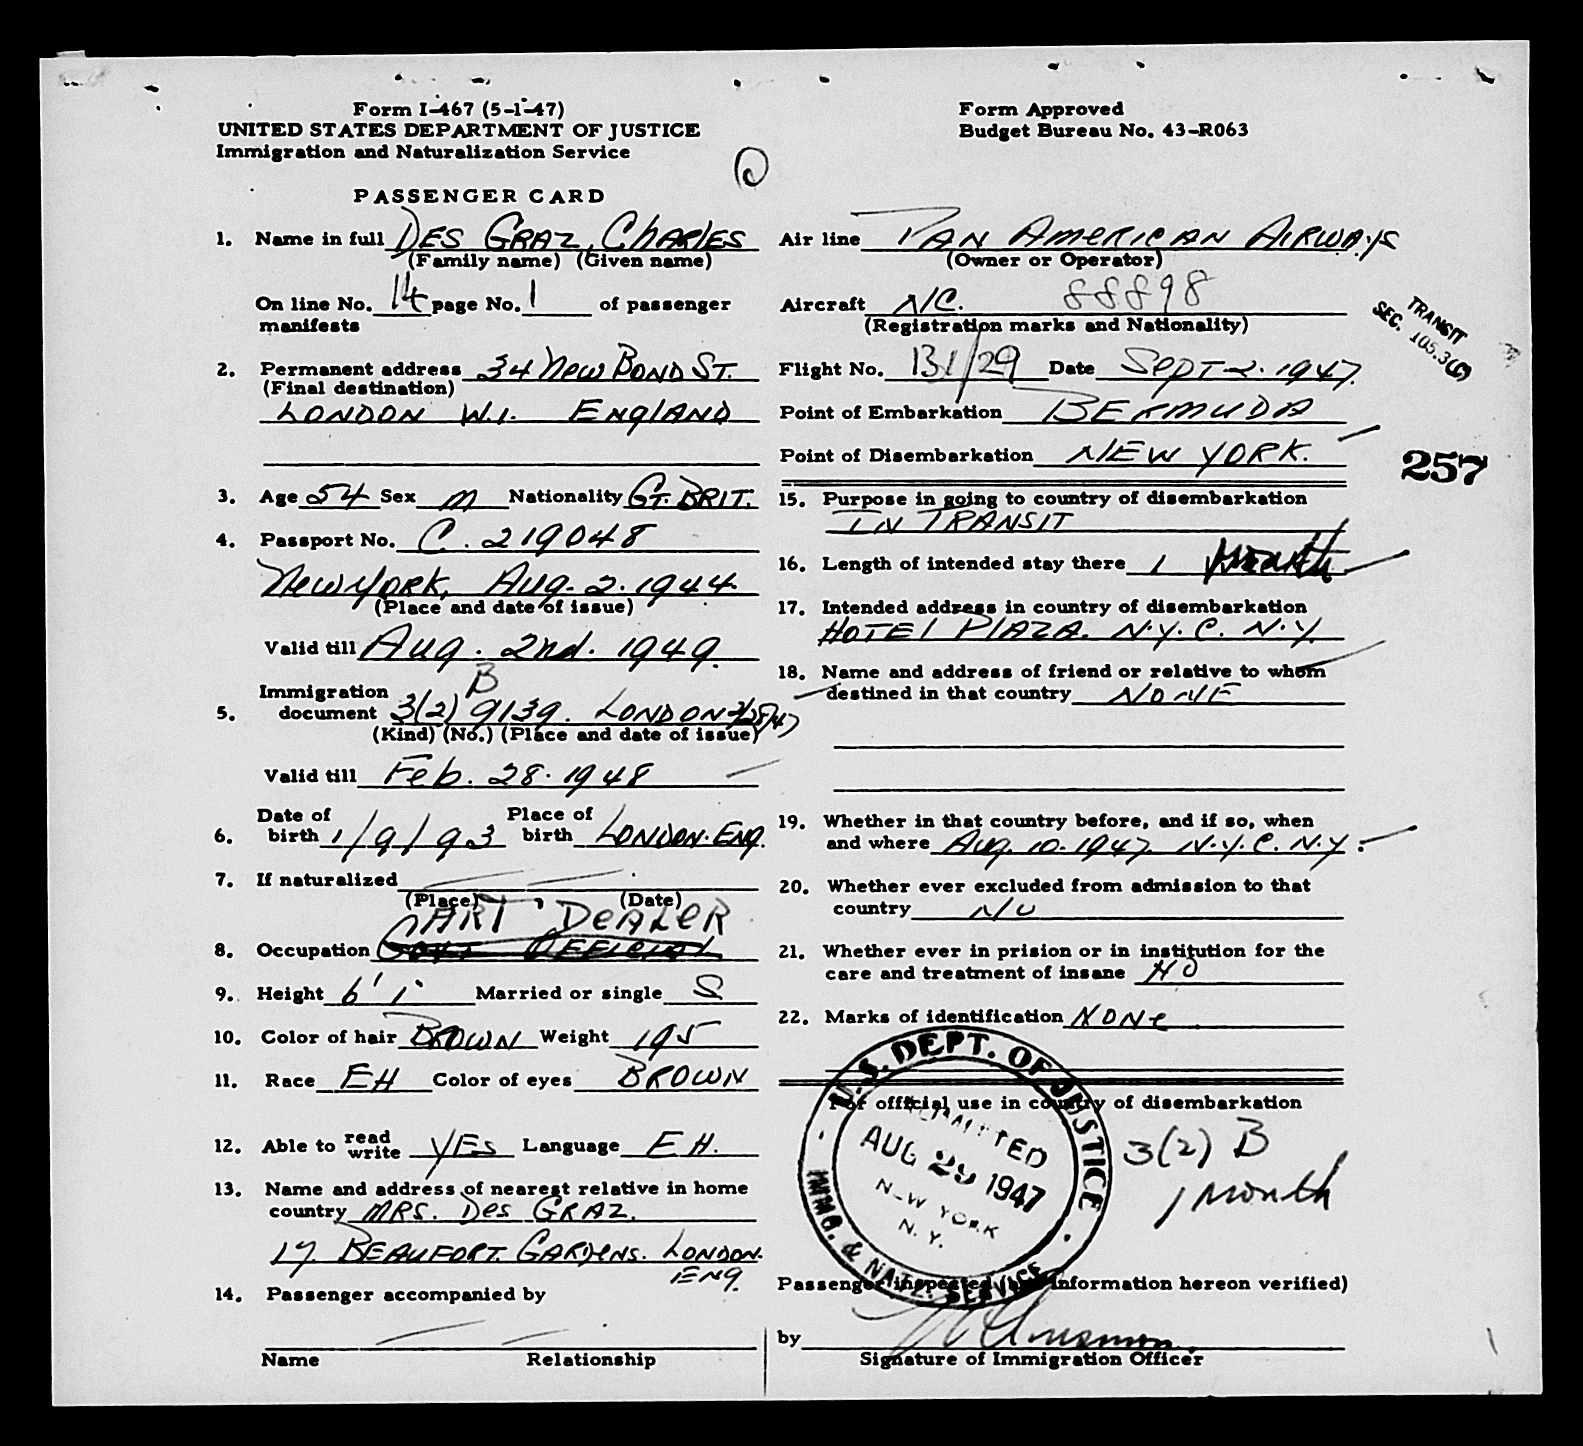 Form I-467 (5-1-47)
UNITED STATES DEPARTMENT OF JUSTICE
Immigration and Naturalization Service
PASSENGER CARD
1. Name in full DES GRAZ, CHARLES
(Family name) (Given name)
On line No. 14 page No. 1 of passenger
manifests
2. Permanent address 34 New BOND ST.
(Final destination)
LONDON W.1. ENGLAND
3. Age 54 Sex M Nationality GT. BRIT.
4. Passport No. C. 219048
New York, Aug. 2. 1944
(Place and date of issue)
Valid till Aug. 2nd. 1949.
B
Immigration
5. document 3(2) 9139. LONDON 2/28/47
(Kind) (No.) (Place and date of issue)
Valid till Feb. 28. 1948
Date of Place of
6. birth 1/9/93 birth LONDON. ENG.
7. If naturalized
(Place) (Date)
ART DEALER
8. Occupation GOVT OFFICIAL
9. Height 6' 1" Married or single S
10. Color of hair BROWN Weight 195
11. Race EH Color of eyes BROWN
12. Able to read write YES Language EH.
13. Name and address of nearest relative in home
country MRS. Des GRAZ.
17. BEAUFORT. GARDENS. LONDON.
ENG.
14. Passenger accompanied by
Name Relationship
Form Approved
Budget Bureau No. 43-R063
Air line PAN AMERICAN AIRWAYS
(Owner or Operator)
Aircraft NC. 88898
(Registration marks and Nationality)
Flight No. 131/29 Date SEPT-2. 1947.
Point of Embarkation BERMUDA
Point of Disembarkation NEW YORK.
TRANSIT
SEC. 105.3(6)
257
15. Purpose in going to country of disembarkation
IN TRANSIT
16. Length of intended stay there 1 month
17. Intended address in country of disembarkation
HOTEL PLAZA. N.Y.C. N.Y.
18. Name and address of friend or relative to whom
destined in that country NONE
19. Whether in that country before, and if so, when
and where Aug. 10. 1947. N.Y.C. N.Y.
20. Whether ever excluded from admission to that
country NO
21. Whether ever in prision or in institution for the
care and treatment of insane NO
22. Marks of identification NONE
For official use in country of disembarkation
U.S. DEPT. OF JUSTICE
ADMITTED
AUG 29 1947
NEW YORK
N. Y.
IMMG. & NATZ. SERVICE
3(2) B
1 month
Passenger inspected (and information hereon verified)
by
Signature of Immigration Officer